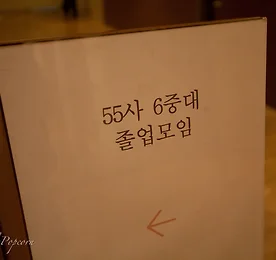 55사 6중대
졸업모임
←
Popcorn